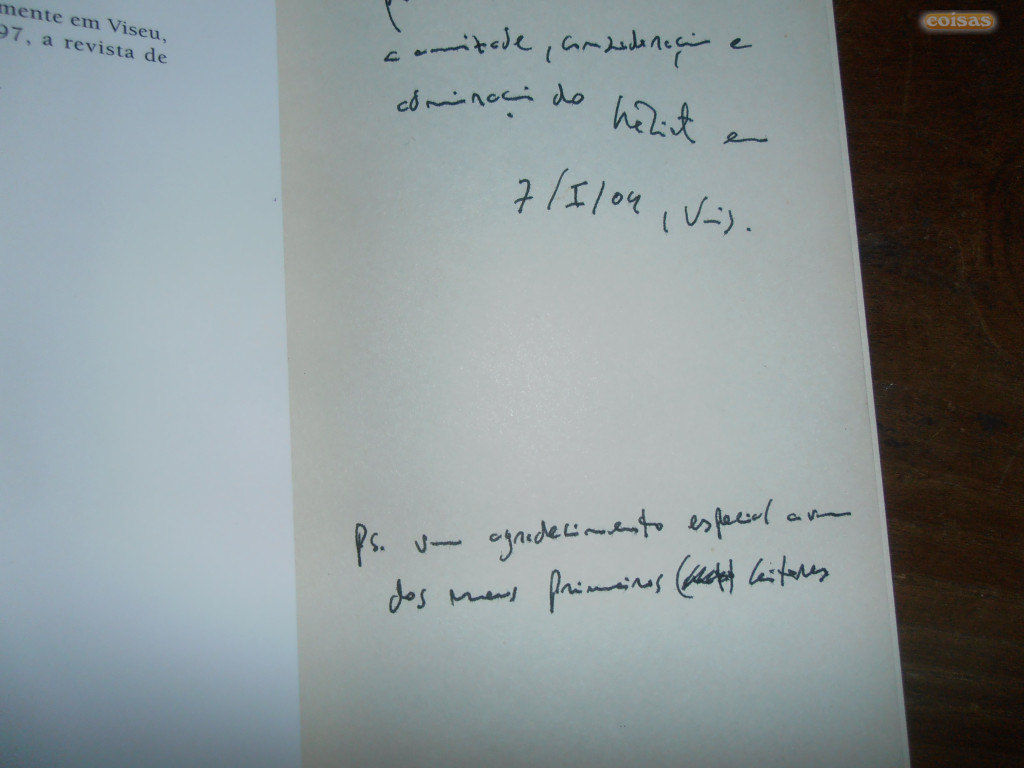 mente em Viseu,
97, a revista de
a amizade, consideração e
admiração do em
7/I/04, Vis.
Ps. um agradecimento especial a um
dos meus primeiros leitores
coisas